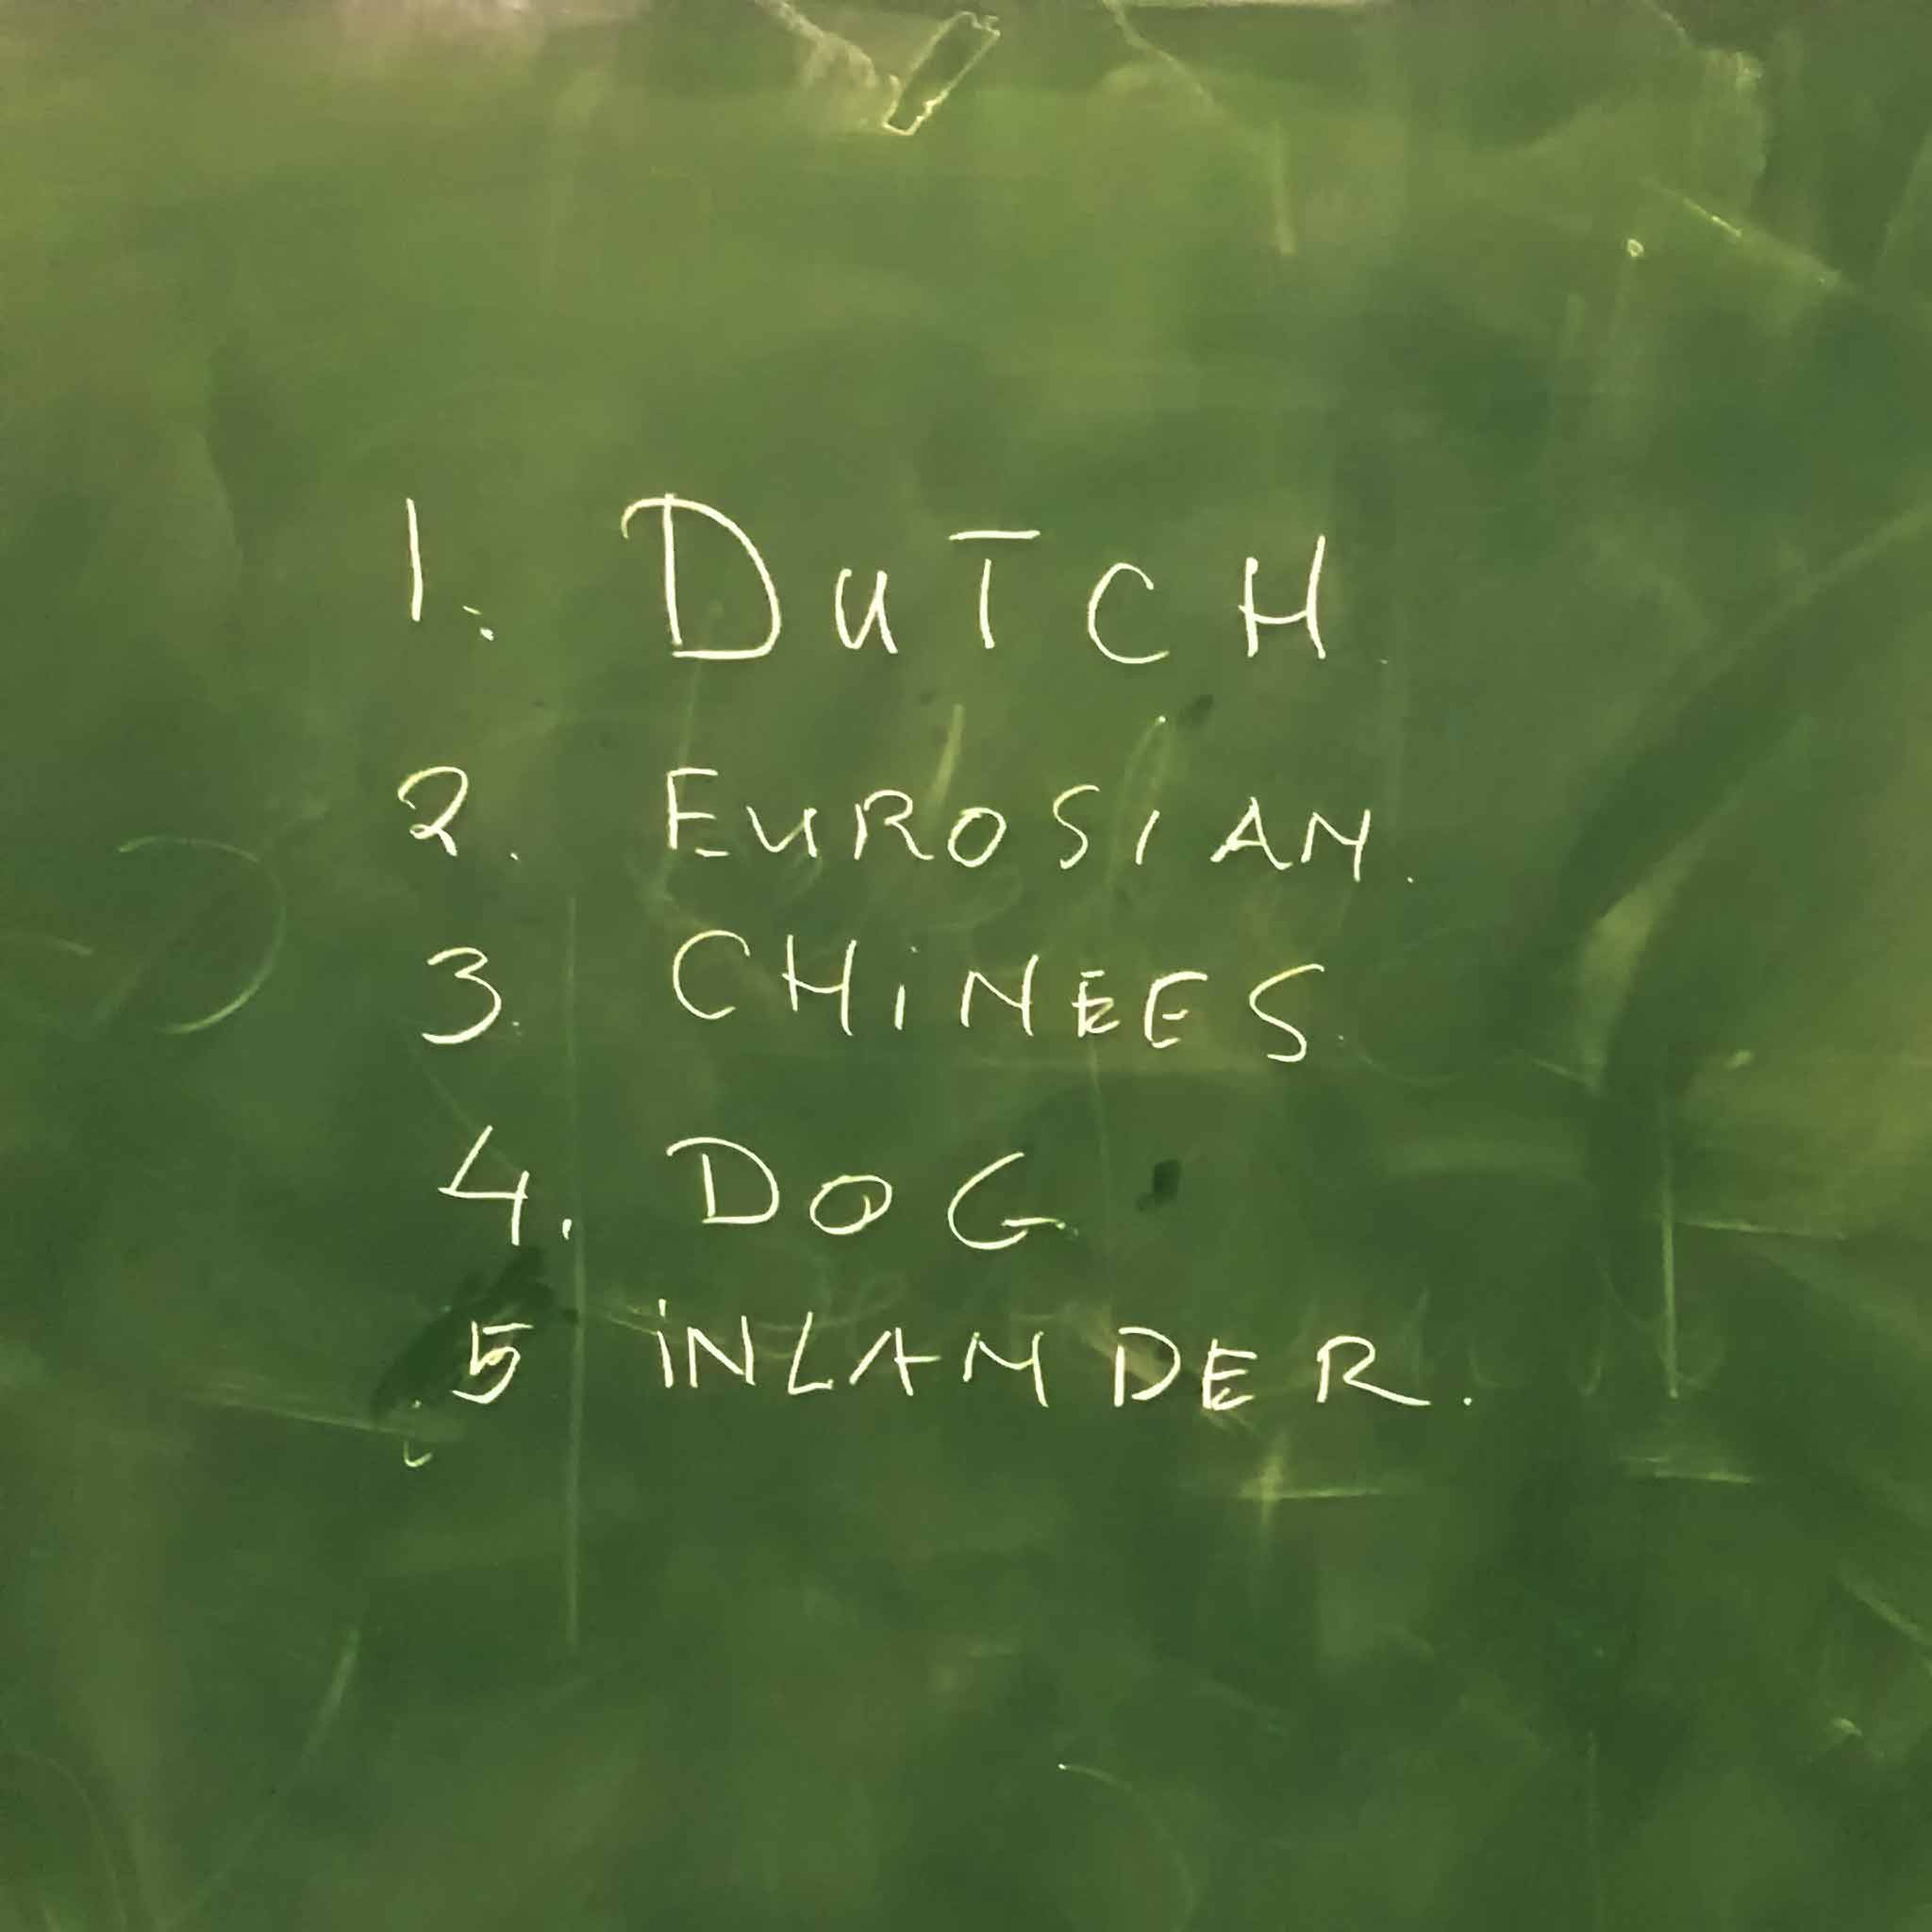 1. DUTCH.
2. EUROSIAN.
3. CHINEES.
4. DOG.
5 INLANDER.